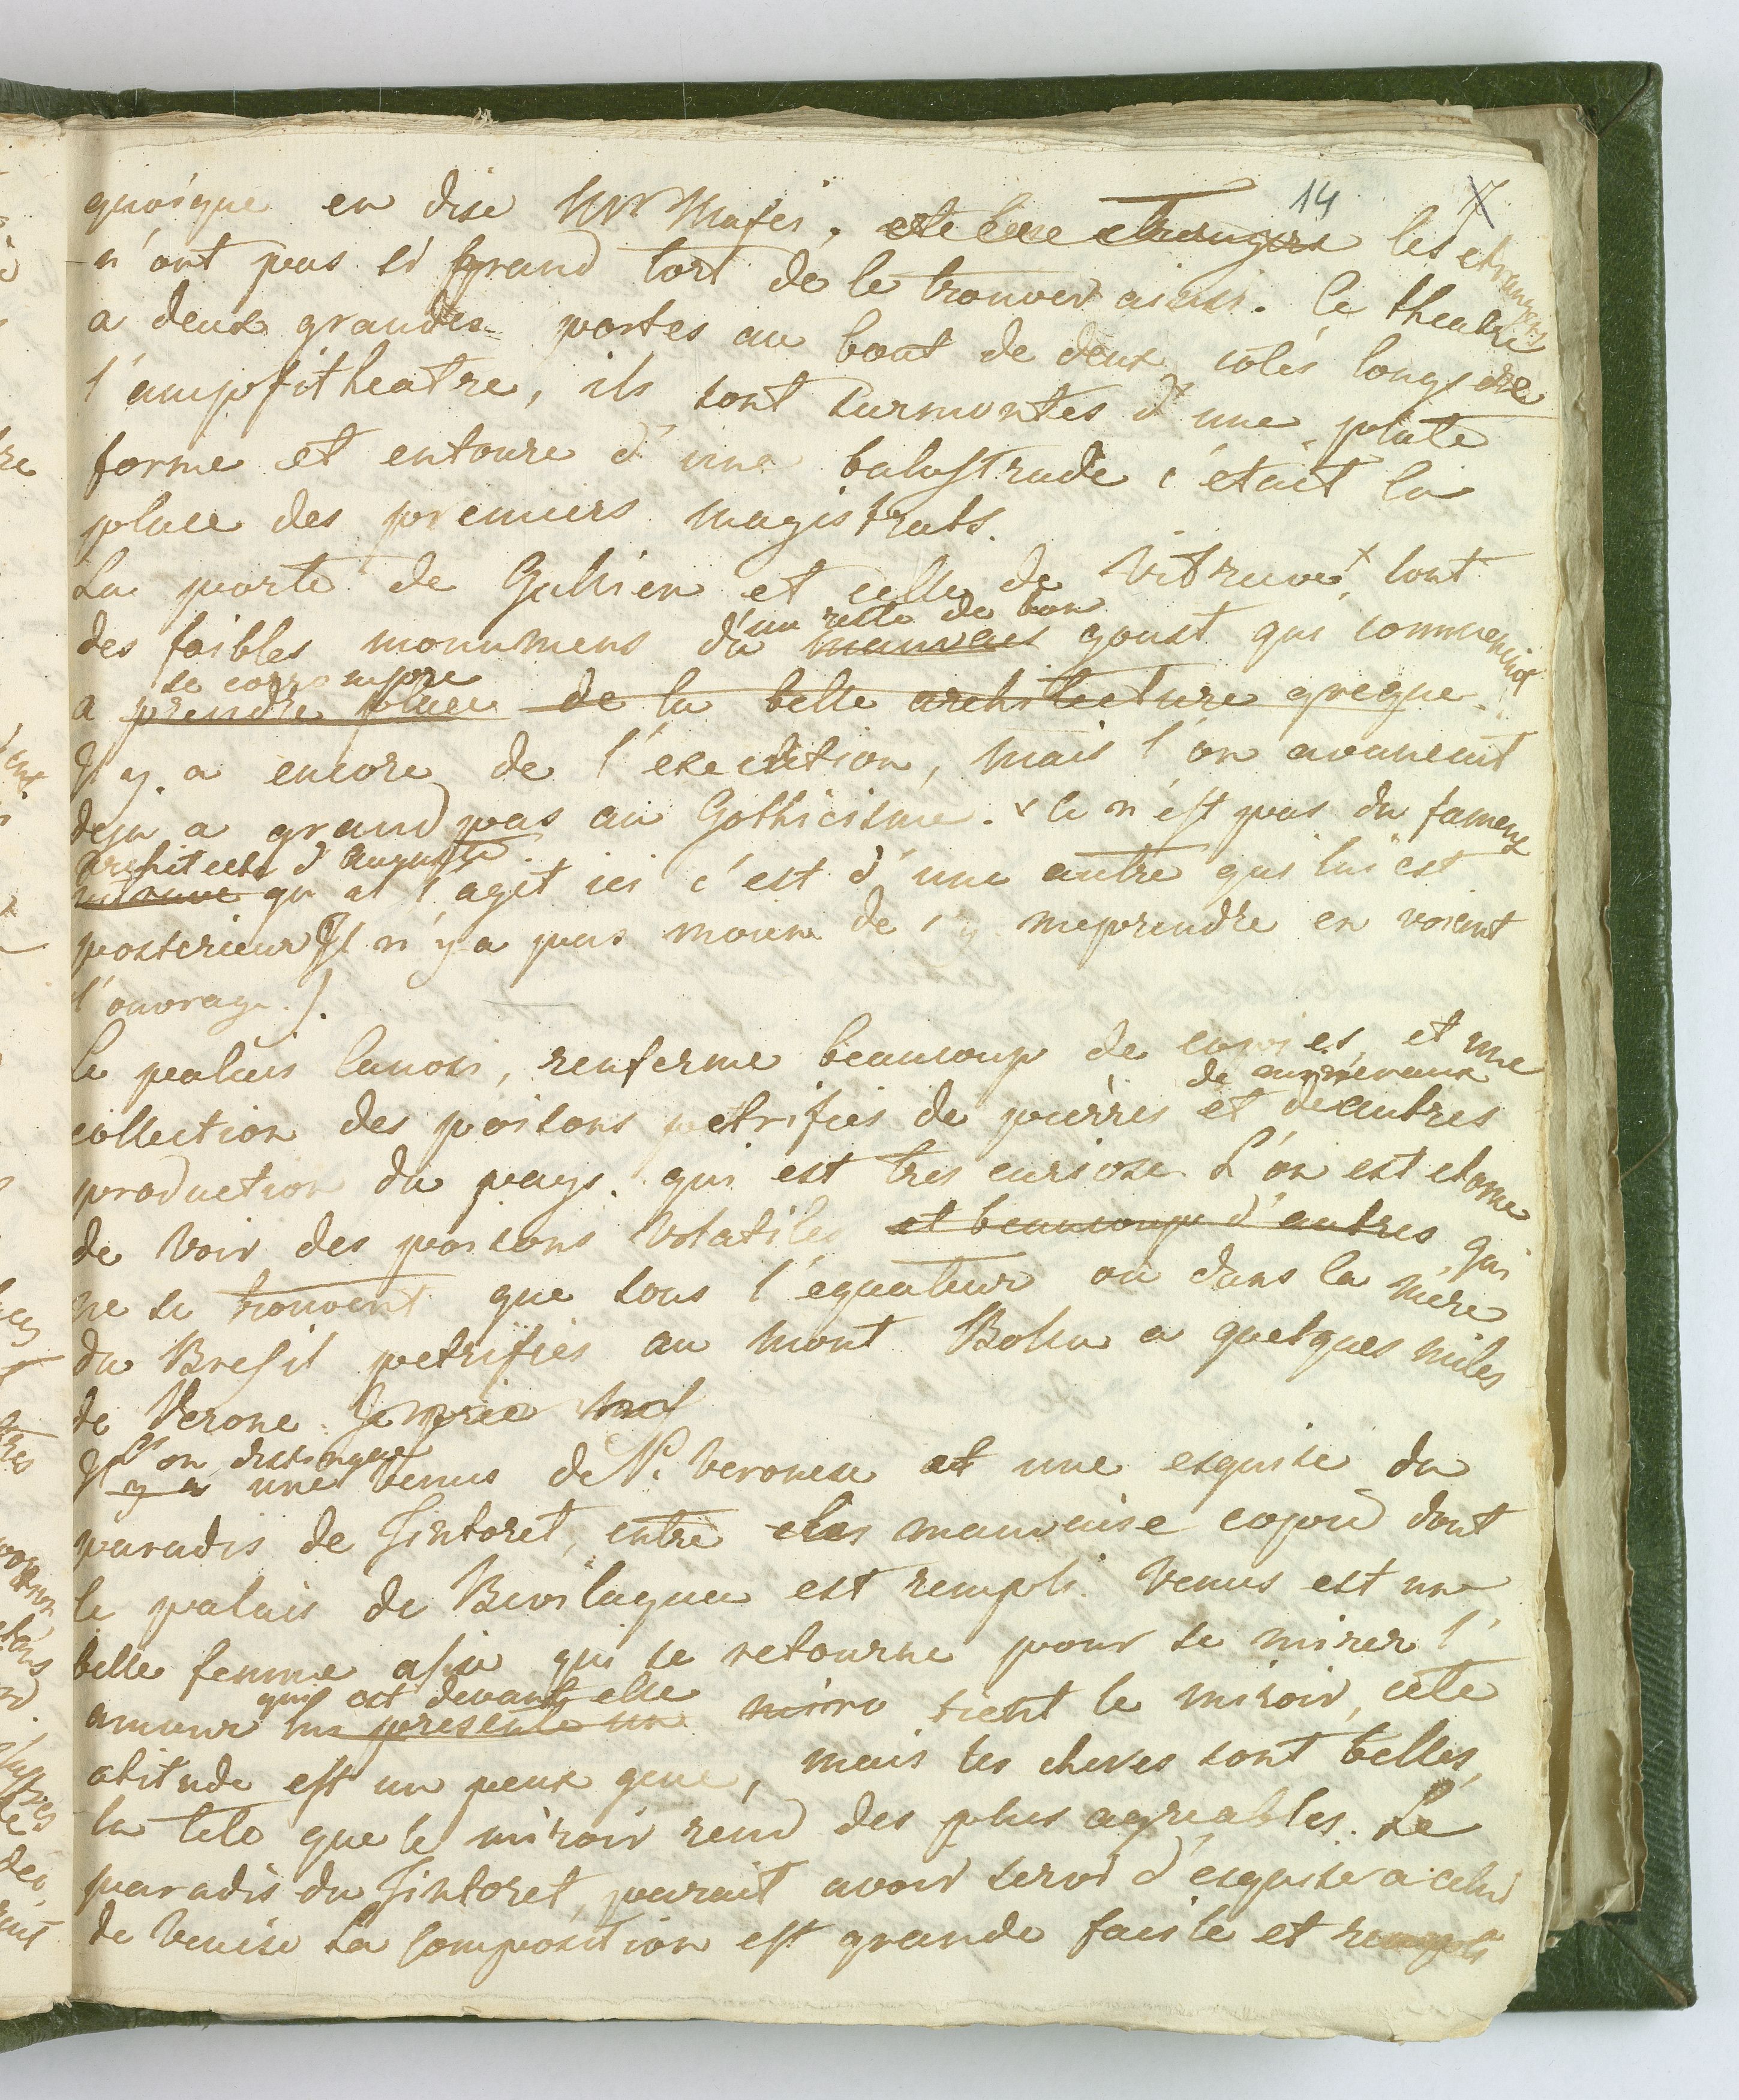 14 7
quoique en dise Mr Mafei, les etrangers
n'ont pas si grand tort de le trouver ainsi. Ce theatre
a deux grandes portes au bout de deux cotés longs de
l'ampfitheatre, ils sont surmontes d'une plate
forme et entoure d'une balustrade c'etait la
place des premiers magistrats.
La porte de Galien et celle de Vitruve x sont
un reste de bon
des foibles monumens du mauvais goust qui commencait
se corrompre
a prendre place de la belle architecture greque.
Il y a encore de l'execution, mais l'on avancait
deja a grand pas au Gothicisme. x Ce n'est pas du fameux
architecte d'Auguste
vitruve qu il s'agit ici c'est d'une autre qui lui est
posterieur (Il n'y a pas moien de s'y meprendre en voient
l'ouvrage.).
Le palais Canosi, renferme beaucoup de copies, et une
de mineraux
collection des poisons petrifies de pierres et de autres
production du pays. qui est tres curiose. L'on est etonne
de voir des poisons volatiles et beaucoup d'autres qui
ne se trouvent que sous l'equateur ou dans la mere
du Bresil petrifies au mont Bolca a quelques miles
de Verone.
l'on distingue
Il y a une Venus de P. Veronese et une esquise du
paradis de Tintoret, entre des mauvaise copie dont
le palais de Bevilaqua est rempli. Venus est une
belle femme assise qui se retourne pour se mirer l'
qui est devant elle
amour lui presente un miro tient le miroir, cete
atitude est un peux gene, mais les cheves sont belles,
la tete que le miroir rend des plus agreables. Le
paradis du Tintoret, parait avoir servi d'esquise a celui
de Venise La composition est grande facile et rempli